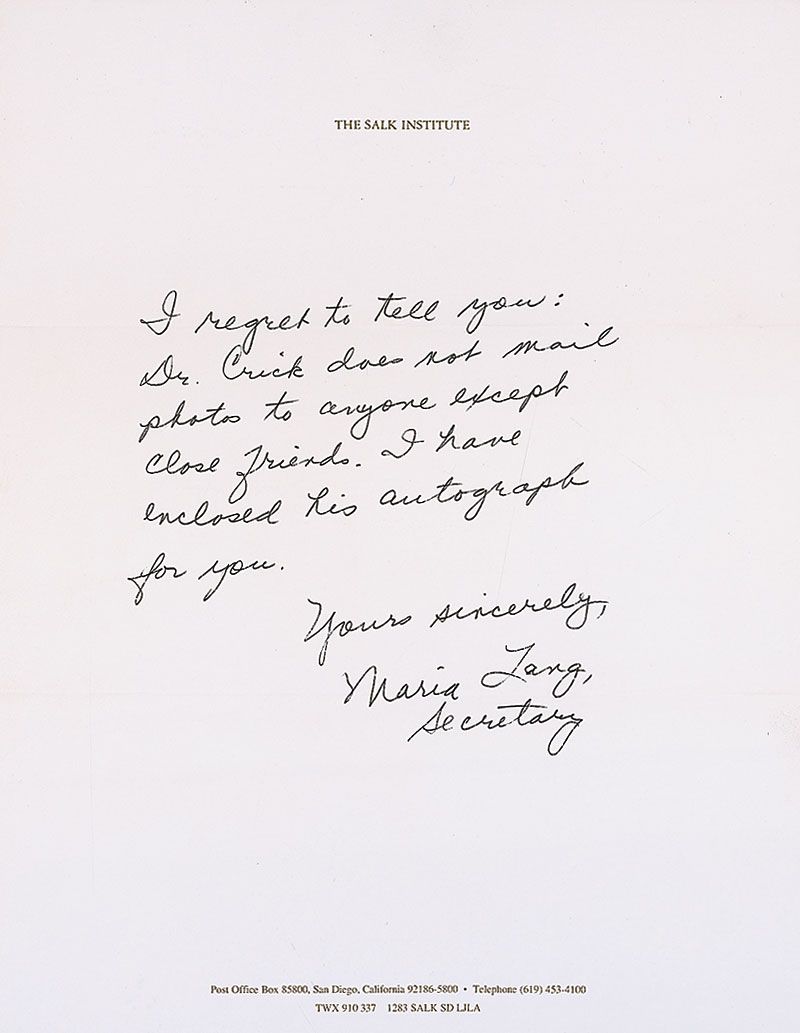 THE SALK INSTITUTE
I regret to tell you:
Dr. Crick does not mail
photos to anyone except
close friends. I have
enclosed his autograph
for you.
Yours sincerely,
Maria Lang,
Secretary
Post Office Box 85800, San Diego, California 92186-5800 • Telephone (619) 453-4100
TWX 910 337 1283 SALK SD LJLA